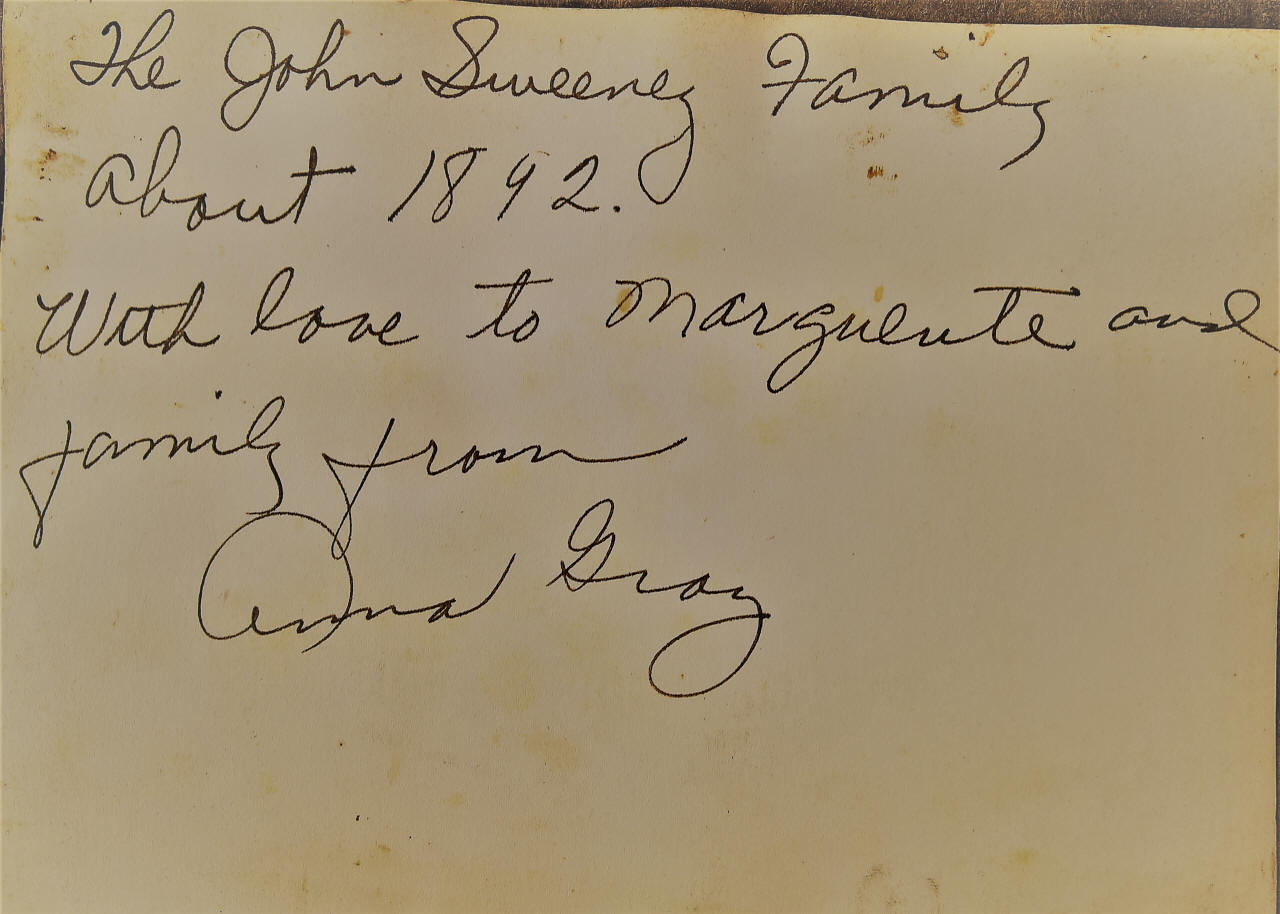 The John Sweeney Family
About 1892.
With love to Marguerite and
family from
Anna Gray